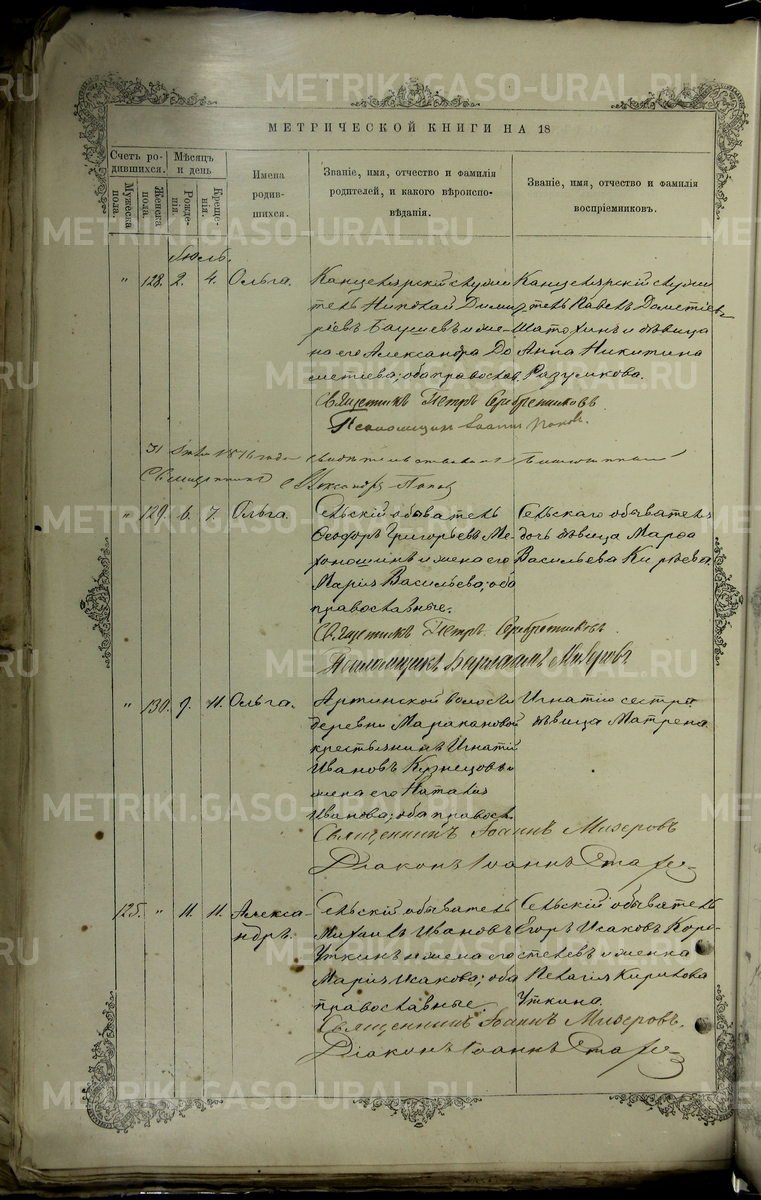 МЕТРИЧЕСКОЙ КНИГИ НА 18
Счетъ ро-
дившихся.
Мѣсяцъ
и день
Мужеска
пола.
Женска
пола.
Рожде-
нія.
Креще-
нія.
Имена
родив-
шихся.
Званіе, имя, отчество и фамилія
родителей, и какого вѣроиспо-
вѣданія.
Званіе, имя, отчество и фамилія
воспріемниковъ.
Июль.
" 128. 2. 4. Ольга.
Канцелярскій служи
тель Николай Димит
ріевъ и же-
на его Александра До
метіева; оба правослов.
Канцелярскій служи
тель Павелъ Дометіевъ
и дѣвица
Анна Никитина
Разумкова.
Священникъ Петръ Серебренниковъ
Псаломщикъ Іоаннъ Поповъ
31 1876 года
Священникъ Александръ Поповъ
" 129. 6. 7. Ольга.
Сельскій обыватель
Ѳеодоръ Григорьевъ Ме-
хоношинъ и жена его
Марія Васильева; оба
православные.
Сельскаго обывателя
дочь дѣвица Марѳа
Васильева Кирѣева.
Священникъ Петръ Серебренниковъ
Псаломщикъ Варлаамъ Мизеровъ
" 130. 9. 11. Ольга.
Артинской волости
деревни Маракановой
крестьянинъ Игнатій
Ивановъ Кузнецовъ и
жена его Наталія
Иванова; оба правосл.
Игнатію сестра
дѣвица Матрена.
Священникъ Іоаннъ Мизеровъ
Діаконъ Іоаннъ
125. " 11. 11. Алекса-
ндръ.
Сельскій обыватель
Михаилъ Ивановъ
Уткинъ и жена его
Марія Исакова; оба
православные.
Сельскій обыватель
Егоръ Исаковъ Коро-
стелевъ и женка
Пелагія Кирилова
Уткина.
Священникъ Іоаннъ Мизеровъ.
Діаконъ Іоаннъ
METRIKI.GASO-URAL.RU